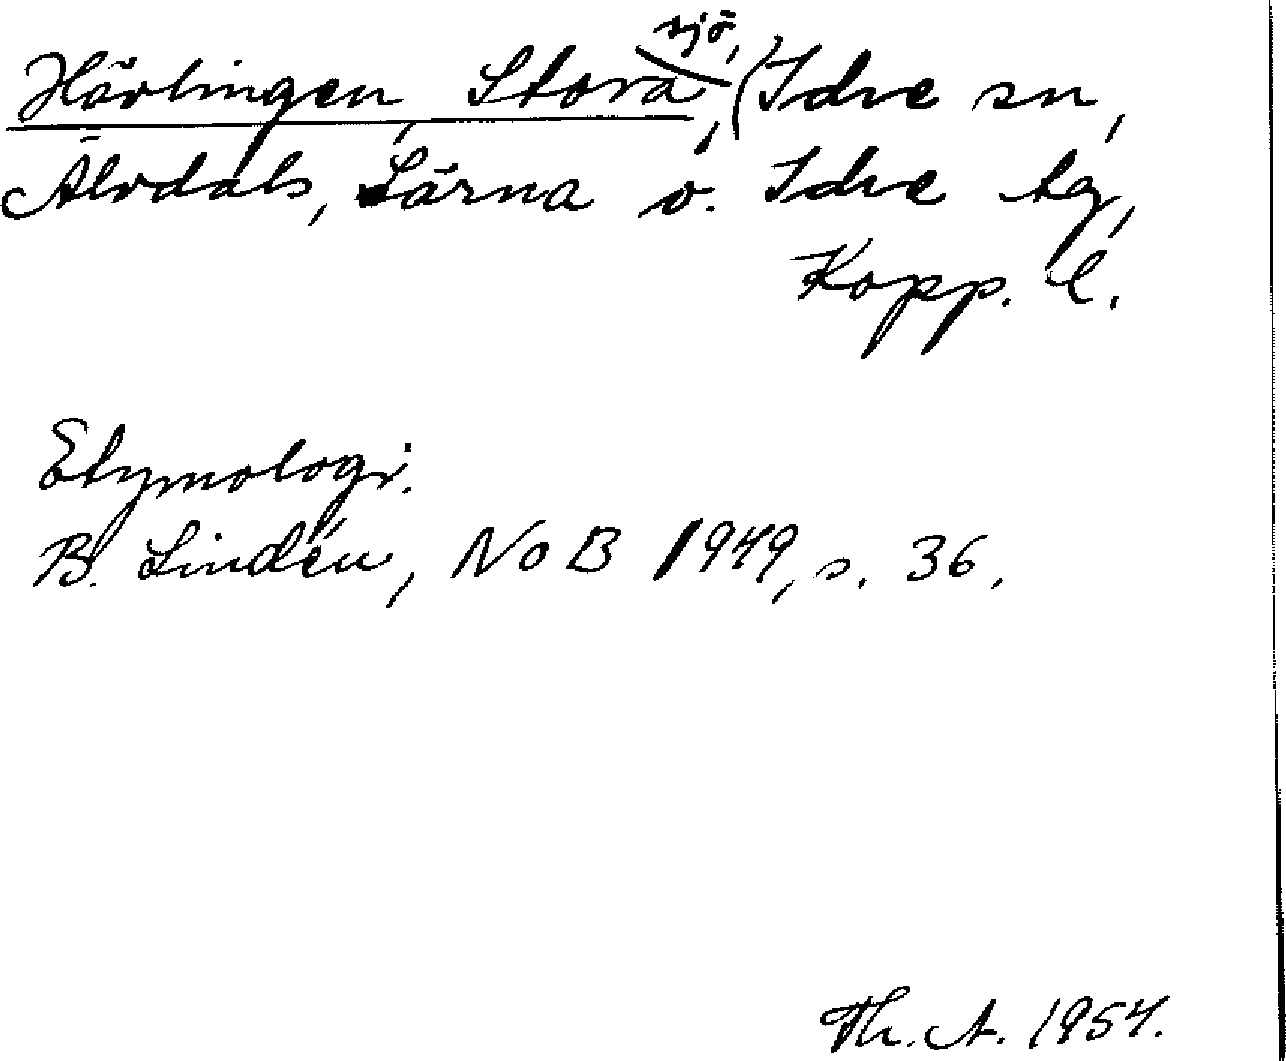 Härlingen, Stora, sjö, (Idre sn,
Älvdals, Särna o. Idre tg,
Kopp. l.
Etymologi.
B. Lindén, NoB 1949, s. 36.
Th. A. 1954.